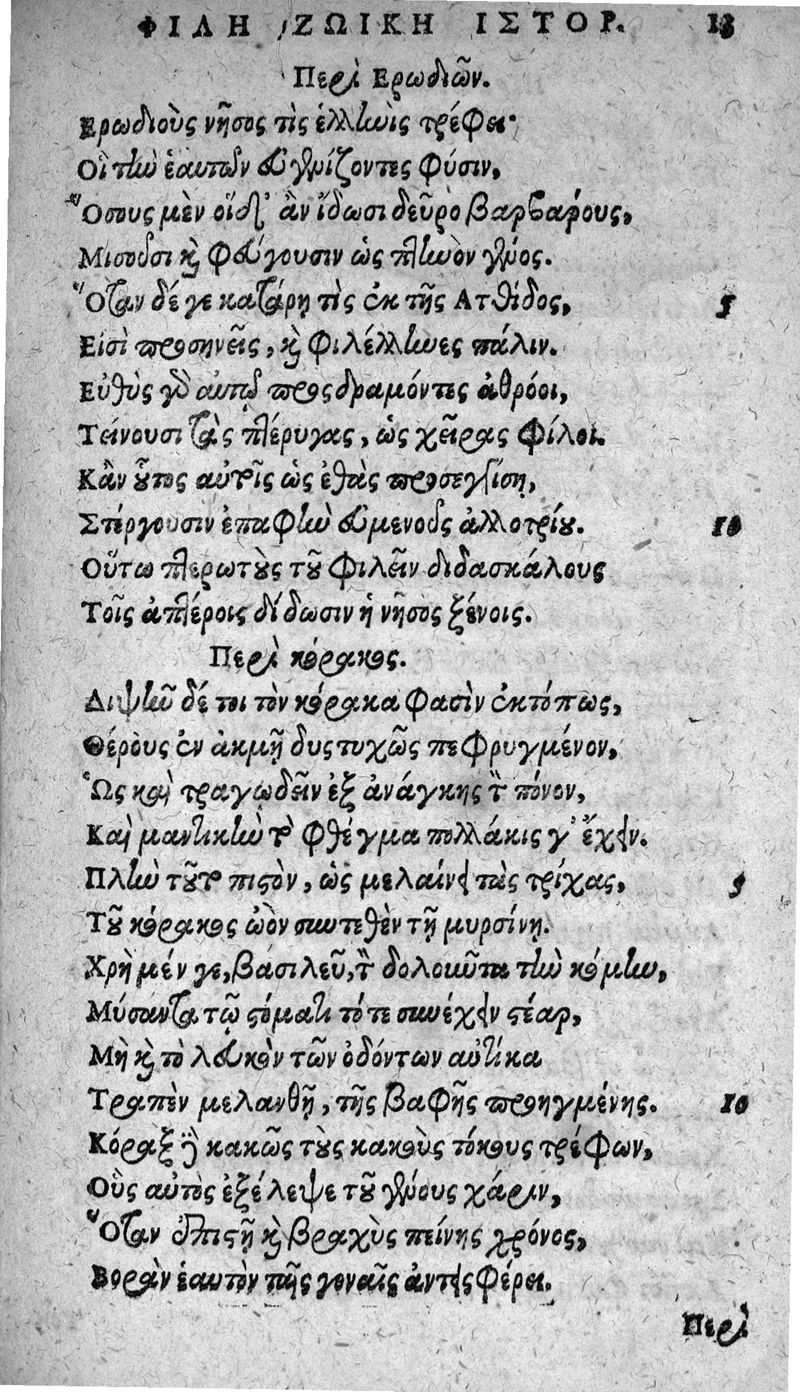 ΦΙΛΗ ΖΩΙΚΗ ΙΣΤΟΡ. 13
Περὶ Ερωδιῶν.
Ερωδιοὺς νῆσος τὶς ἑλληνὶς τρέφει·
Οἳ τὴν ἑαυτῶν εὐγενίζοντες φύσιν,
Ὅσους μὲν οἵδ' ἂν ἴδωσι δεῦρο βαρβάρους,
Μισοῦσι καὶ φεύγουσιν ὡς πτηνὸν γένος.
Ὅταν δέ γε κατάρῃ τὶς ἐκ τῆς Ατθίδος, 5
Εἰσὶ προσηνεῖς, καὶ φιλέλληνες πάλιν.
Εὐθὺς γὸ αὐτῷ προςδραμόντες ἀθρόοι,
Τείνουσι τὰς πτέρυγας, ὡς χεῖρας φίλοι.
Κἂν οὗτος αὐτοῖς ὡς ἐθὰς προσεγγίσῃ,
Στέργουσιν ἐπαφὴν εὐμενοῦς ἀλλοτρίου. 10
Οὕτω πτερωτοὺς τοῦ φιλεῖν διδασκάλους
Τοῖς ἀπτέροις δίδωσιν ἡ νῆσος ξένοις.
Περὶ κόρακος.
Διψῆν δέ τοι τὸν κόρακα φασὶν ἐκτόπως,
Θέρους ἐν ἀκμῇ δυςτυχῶς πεφρυγμένον,
Ὡς καὶ τραγῳδεῖν ἐξ ἀνάγκης τὸν πόνον,
Καὶ μαντικὴν τὸ φθέγμα πολλάκις γ' ἔχειν.
Πλὴν τοῦτο πιστὸν, ὡς μελαίνει τὰς τρίχας, 5
Τοῦ κόρακος ὠὸν συντεθὲν τῇ μυρσίνῃ.
Χρὴ μέν γε, βασιλεῦ, τὸν δολοῦντα τὴν κόμην,
Μύσαντα τῷ στόματι τότε συνέχειν στέαρ,
Μὴ καὶ τὸ λευκὸν τῶν ὀδόντων αὐτίκα
Τραπὲν μελανθῇ, τῆς βαφῆς προηγμένης. 10
Κόραξ δὲ κακῶς τοὺς κακοὺς τόκους τρέφων,
Οὓς αὐτὸς ἐξέλεψε τοῦ γένους χάριν,
Ὅταν ἐπιστῇ καὶ βραχὺς πείνης χρόνος,
Βορὰν ἑαυτὸν παῖς γοναῖς ἀντεισφέρει.
Περὶ